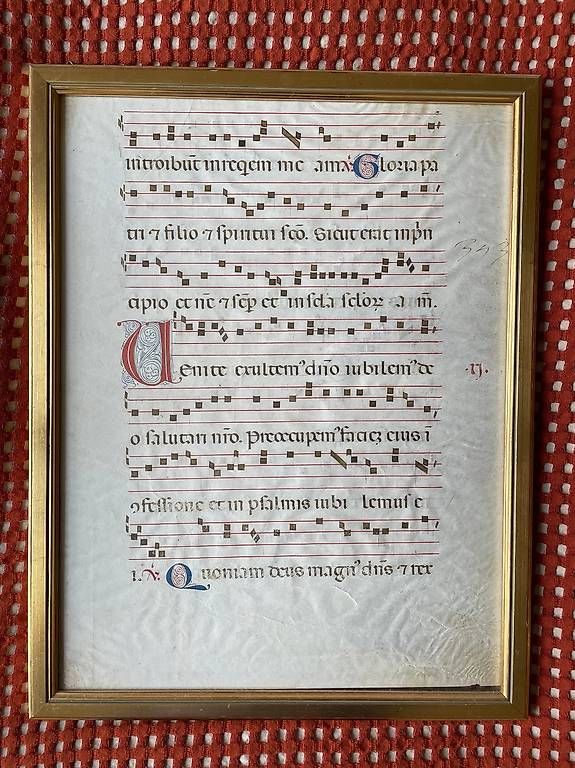 introibūt in reqem me am. ℣. Gloria pa
tri ⁊ filio ⁊ spiritui scō. Sicut erat in prin
cipio et nūc ⁊ sēp et in scla sclor am.
Uenite exultemꝰ dño iubilemꝰ de
.ij.
o salutari nr̄o. Preoccupemꝰ faciez eius ī
ꝯfessione et in psalmis iubi lemus e
i. ℣. Quoniam deus magnꝰ dn̄s ⁊ rex